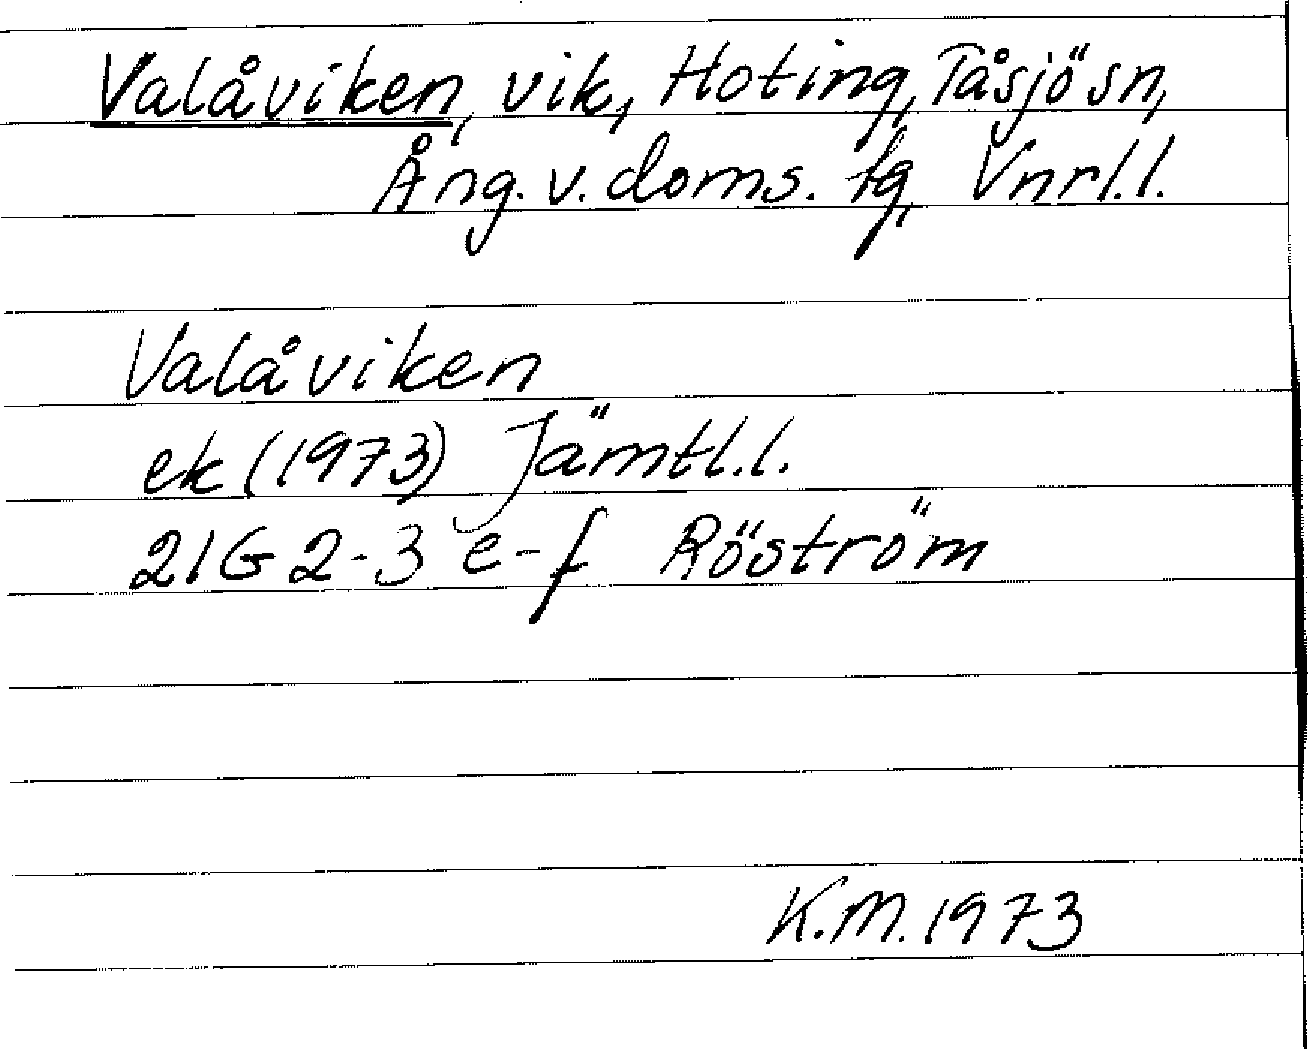 Valåviken, vik, Hoting, Tåsjö sn,
Ång. v. doms. tg, Vnrl.l.
Valåviken
ek (1973) Jämtl.l.
21G 2-3 e-f Röström
K.M. 1973